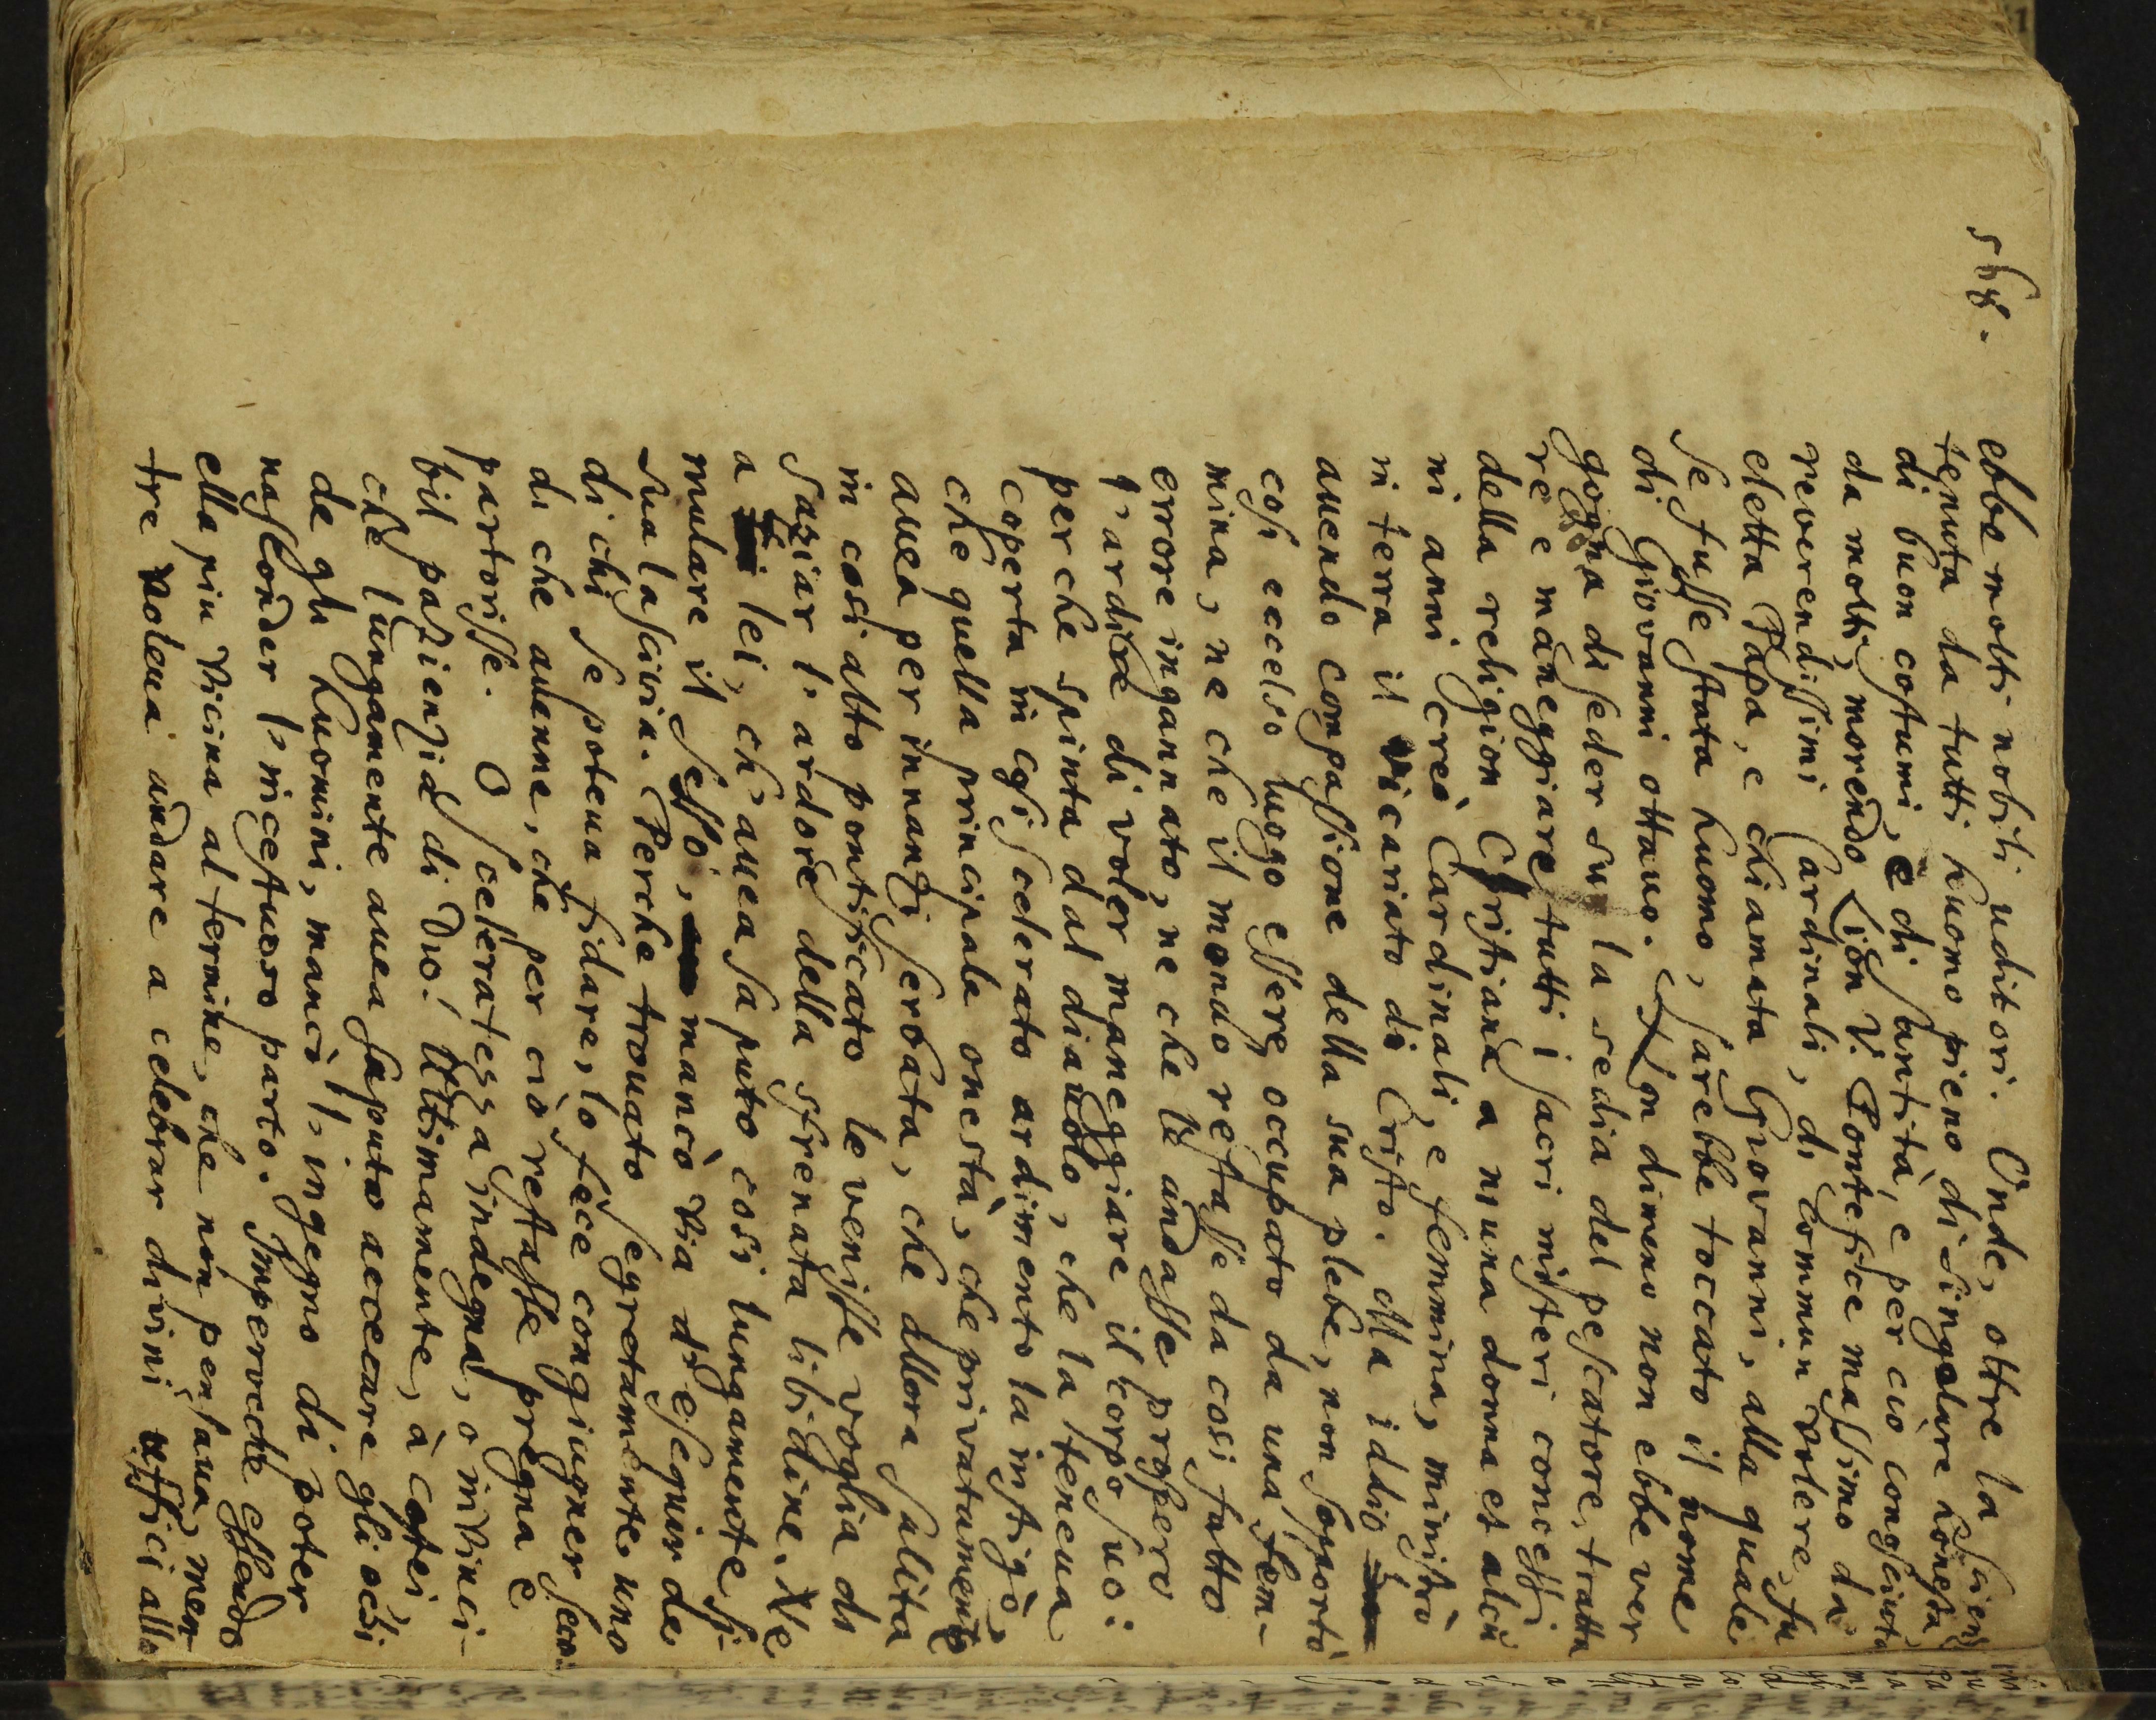 548.
ebbe molti nobili uditori. Onde, oltre la scien
tenuta da tutti huomo pieno di singolare honesta
di buon costumi, e di santità, e per ciò conosciuta
da molti, morendo Lion V. Pontefice massimo da
reverendissimi Cardinali, di commun volere, fu
eletta Papa, e chiamata Giovanni, alla quale
se fusse stata huomo, sarebbe toccato il nome
di Giovanni ottauo. Non dimeno non ebbe ver
gogna di seder su la sedia del pescatore, tratta
re e maneggiare tutti i sacri misteri concessi
della religion Cristiana a niuna donna et alcu
ni anni creò Cardinali, e femmina, ministrò
in terra il vicariato di Cristo. Ma iddio
auendo compassione della sua plebe, non sopportò
cosi eccelso luogo essere occupato da una fem-
mina, ne che il mondo restasse da cosi fatto
errore ingannato, ne che le andasse prospero
l'ardire di voler maneggiare il corpo suo:
per che spinta dal diauolo, che la teneua
coperta in cosi scelerato ardimento la instigò,
che quella principale onestà, che privatamente
auea per innanzi serbata, che allora salita
in cosi alto pontificato le venisse voglia di
saziar l'ardore della sfrenata libidine. Ne
a lei, ch'auea saputo cosi lungamente si-
mulare il sesso, mancò via di eseguir de
sua lascivia. Perche trouato segretamente uno
di chi se poteua fidare, lo fece congiugner seco:
di che auenne, che per ciò restasse pregna e
partorisse. O sceleratezza indegna, o invinci-
bil pazienzia di Dio! Ultimamente, à costei
che lungamente auea saputo accecare gli occhi
de gli huomini, mancò l'ingegno di poter
nasconder l'incestuoso parto. Imperocche essendo
ella piu vicina al termine, che non pensaua, men-
tre voleua andare a celebrar divini uffici alla